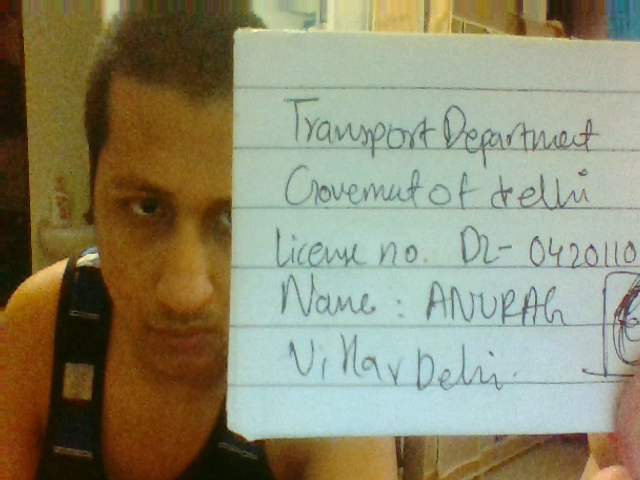 Transport Department
Government of delhi
License no. DL- 0420110
Name : ANURAG
Delhi.